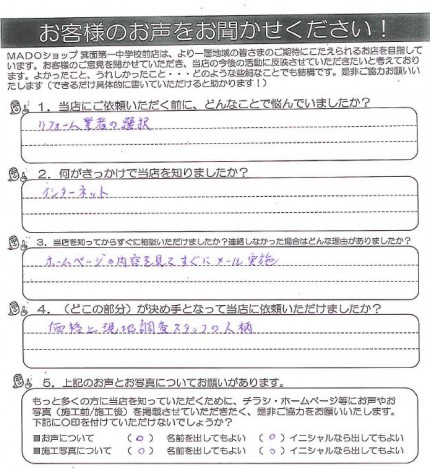 お客様のお声をお聞かせください!
MADOショップ 箕面第一中学校前店は、より一層地域の皆さまのご期待にこたえられるお店を目指しています。お客様のご意見を聞かせていただき、当店の今後の活動に反映させていただきたいと考えております。よかったこと、うれしかったこと・・・どのような些細なことでも結構です。是非ご協力お願いいたします(できるだけ具体的に書いていただけると助かります!)
1. 当店にご依頼いただく前に、どんなことで悩んでいましたか?
リフォーム業者の選択
2. 何がきっかけで当店を知りましたか?
インターネット
3. 当店を知ってからすぐに相談いただけましたか?連絡しなかった場合はどんな理由がありましたか?
ホームページの内容を見てすぐにメール実施
4. (どこの部分)が決め手となって当店に依頼いただけましたか?
価格と現地調査スタッフの人柄
5. 上記のお声とお写真についてお願いがあります。
もっと多くの方に当店を知っていただくために、チラシ・ホームページ等にお声やお
写真(施工前/施工後)を掲載させていただきたく、是非ご協力をお願いいたします。
下記に〇印を付けていただけないでしょうか?
■お声について (○) 名前を出してもよい (○) イニシャルなら出してもよい
■施工写真について (○) 名前を出してもよい (○) イニシャルなら出してもよい